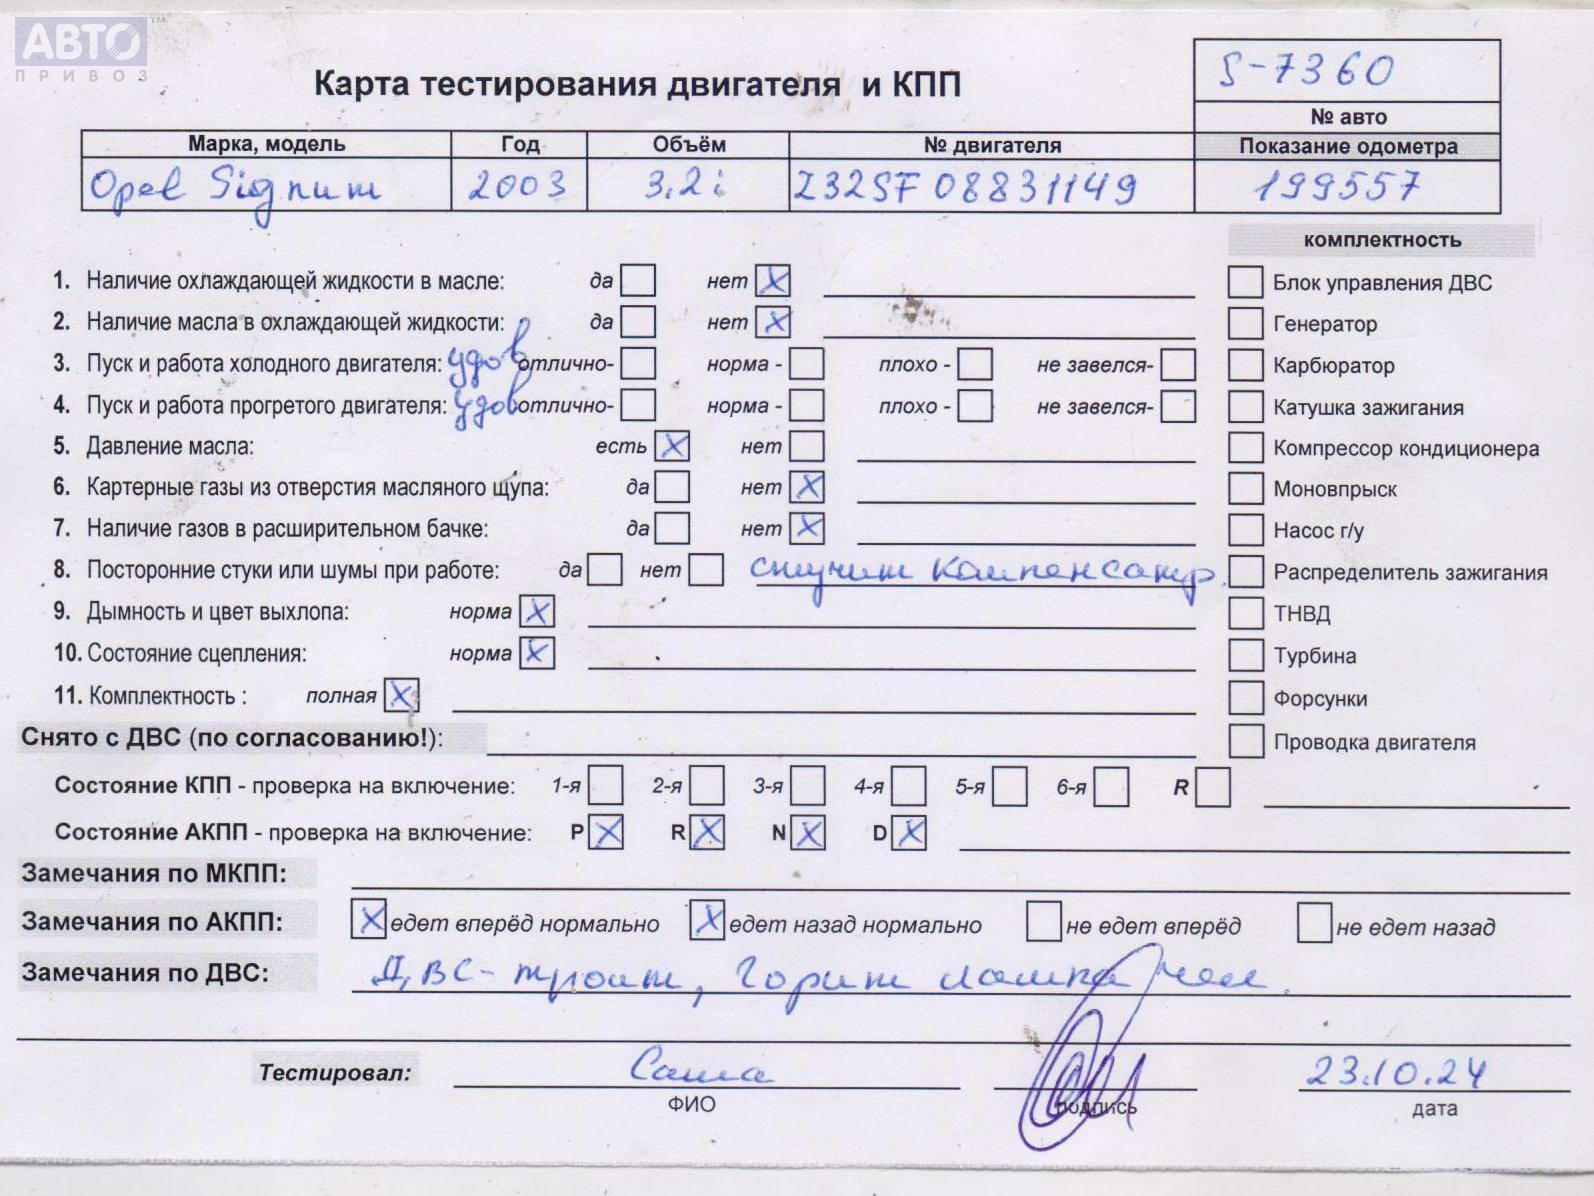 АВТО™
ПРИВОЗ
S-7360
Карта тестирования двигателя и КПП
№ авто
Марка, модель Год Объём № двигателя Показание одометра
Opel Signum 2003 3,2i Z32SF 08831149 199557
комплектность
1. Наличие охлаждающей жидкости в масле: да нет X Блок управления ДВС
2. Наличие масла в охлаждающей жидкости: да нет X Генератор
3. Пуск и работа холодного двигателя: удов отлично- норма - плохо - не завелся- Карбюратор
4. Пуск и работа прогретого двигателя: удов отлично- норма - плохо - не завелся- Катушка зажигания
5. Давление масла: есть X нет Компрессор кондиционера
6. Картерные газы из отверстия масляного щупа: да нет X Моновпрыск
7. Наличие газов в расширительном бачке: да нет X Насос г/у
8. Посторонние стуки или шумы при работе: да нет стучит компенсатор. Распределитель зажигания
9. Дымность и цвет выхлопа: норма X ТНВД
10. Состояние сцепления: норма X Турбина
11. Комплектность : полная X Форсунки
Снято с ДВС (по согласованию!): Проводка двигателя
Состояние КПП - проверка на включение: 1-я 2-я 3-я 4-я 5-я 6-я R
Состояние АКПП - проверка на включение: P X R X N X D X
Замечания по МКПП:
Замечания по АКПП: X едет вперёд нормально X едет назад нормально не едет вперёд не едет назад
Замечания по ДВС: ДВС - троит, горит лампа
Тестировал: Саша 23.10.24
ФИО подпись дата